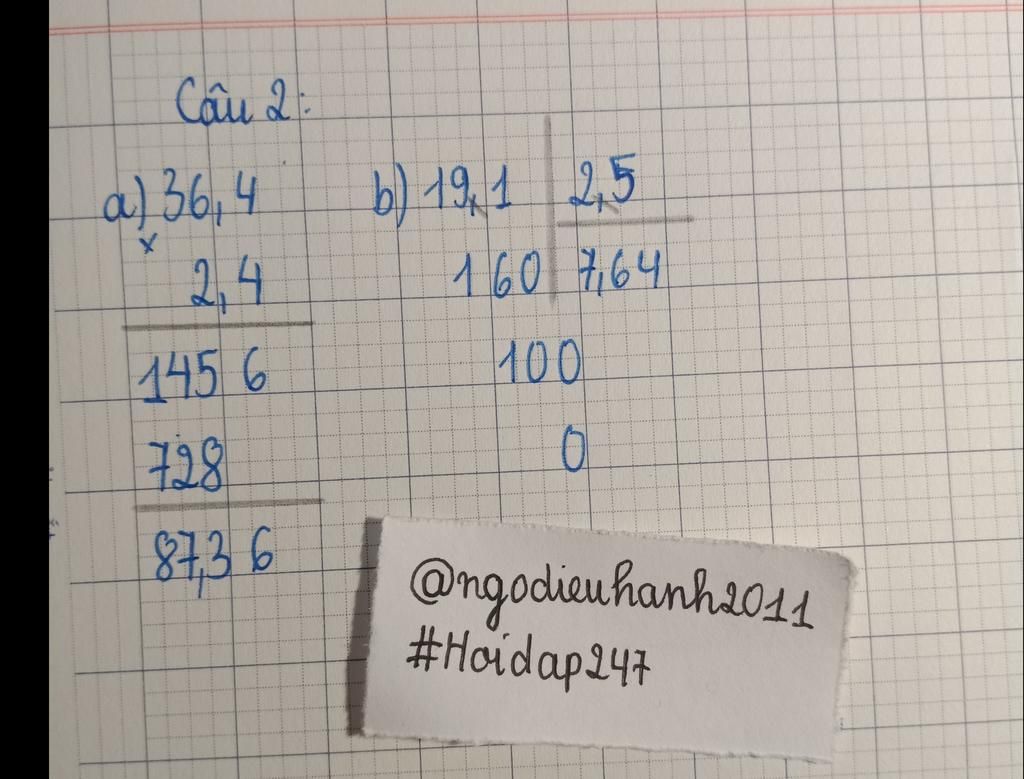 Câu 2:
a) 36,4
x
2,4
1456
728
87,36
b) 19,1 2,5
160 7,64
100
0
@ngodieuhanh2011
#Hoidap247